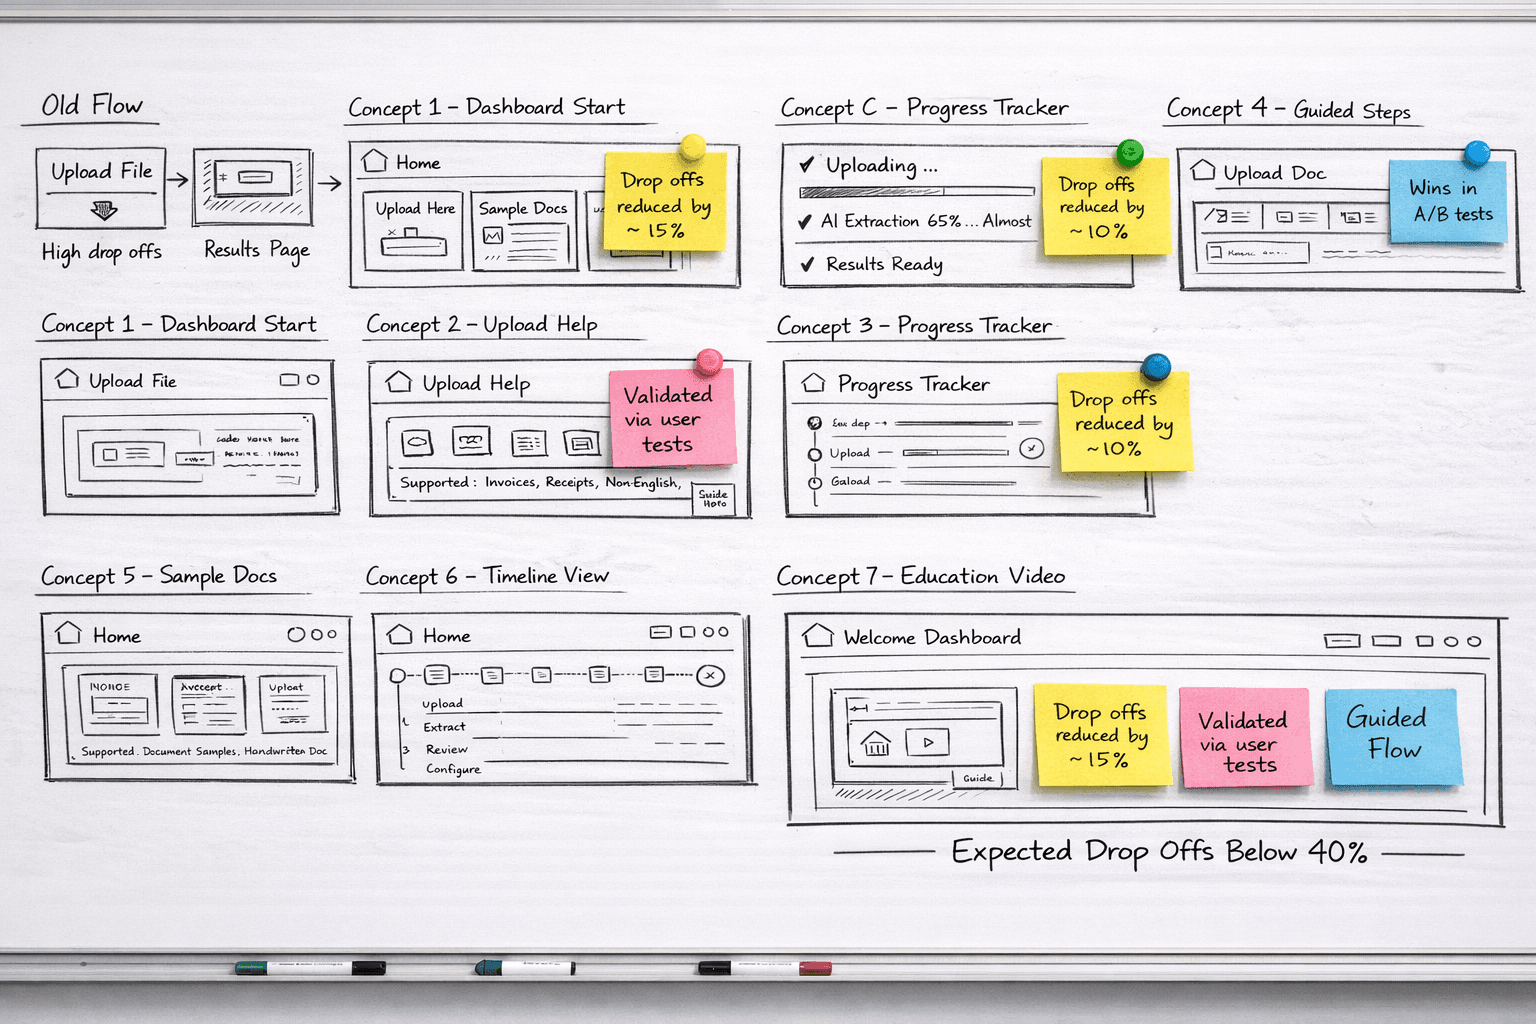 Old Flow
Upload File
High drop offs
Results Page
Concept 1 – Dashboard Start
Home
Upload Here
Sample Docs
Drop offs
reduced by
~ 15%
Concept C – Progress Tracker
✓ Uploading ...
✓ AI Extraction 65% ... Almost
✓ Results Ready
Drop offs
reduced by
~10%
Concept 4 – Guided Steps
Upload Doc
Wins in
A/B tests
Concept 1 – Dashboard Start
Upload File
Concept 2 – Upload Help
Upload Help
Supported : Invoices, Receipts, Non-English,
Guide
Validated
via user
tests
Concept 3 – Progress Tracker
Progress Tracker
Upload
Gaload
Drop offs
reduced by
~10%
Concept 5 – Sample Docs
Home
INVOICE
Upload
Supported. Document Samples, Handwritten Doc
Concept 6 – Timeline View
Home
Upload
Extract
3 Review
Configure
Concept 7 – Education Video
Welcome Dashboard
Guide
Drop offs
reduced by
~15%
Validated
via user
tests
Guided
Flow
Expected Drop Offs Below 40%